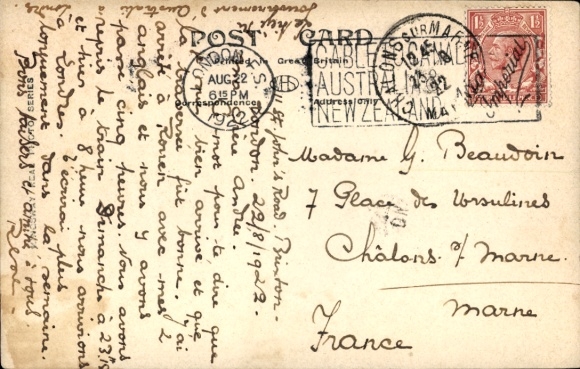 POST CARD
Printed in Great Britain
Correspondence
Address only
KINGSWAY REAL PHOTO SERIES
LONDON S.W.
AUG 22
6 15 PM
1922
CABLE CANADA
AUSTRALIA
NEW ZEALAND
VIA Imperial
CHALONS SUR MARNE
MARNE
Madame G. Beaudoin
7 Place des Ursulines
Châlons s/ Marne
Marne
France
St John's Road. Brixton.
London. 22/8/1922.
Chère Andrée
Un mot pour te dire que
je suis bien arrivé et que
la traversée fut bonne. J'ai
arrêté à Rouen avec mes 2
anglais et nous y avons
passé cinq heures. Nous avons
repris le train Dimanche à 23h15
et hier à 8 heures nous arrivions
à Londres. J'écrirai plus
longuement dans la semaine.
Bons baisers et amitié à tous.